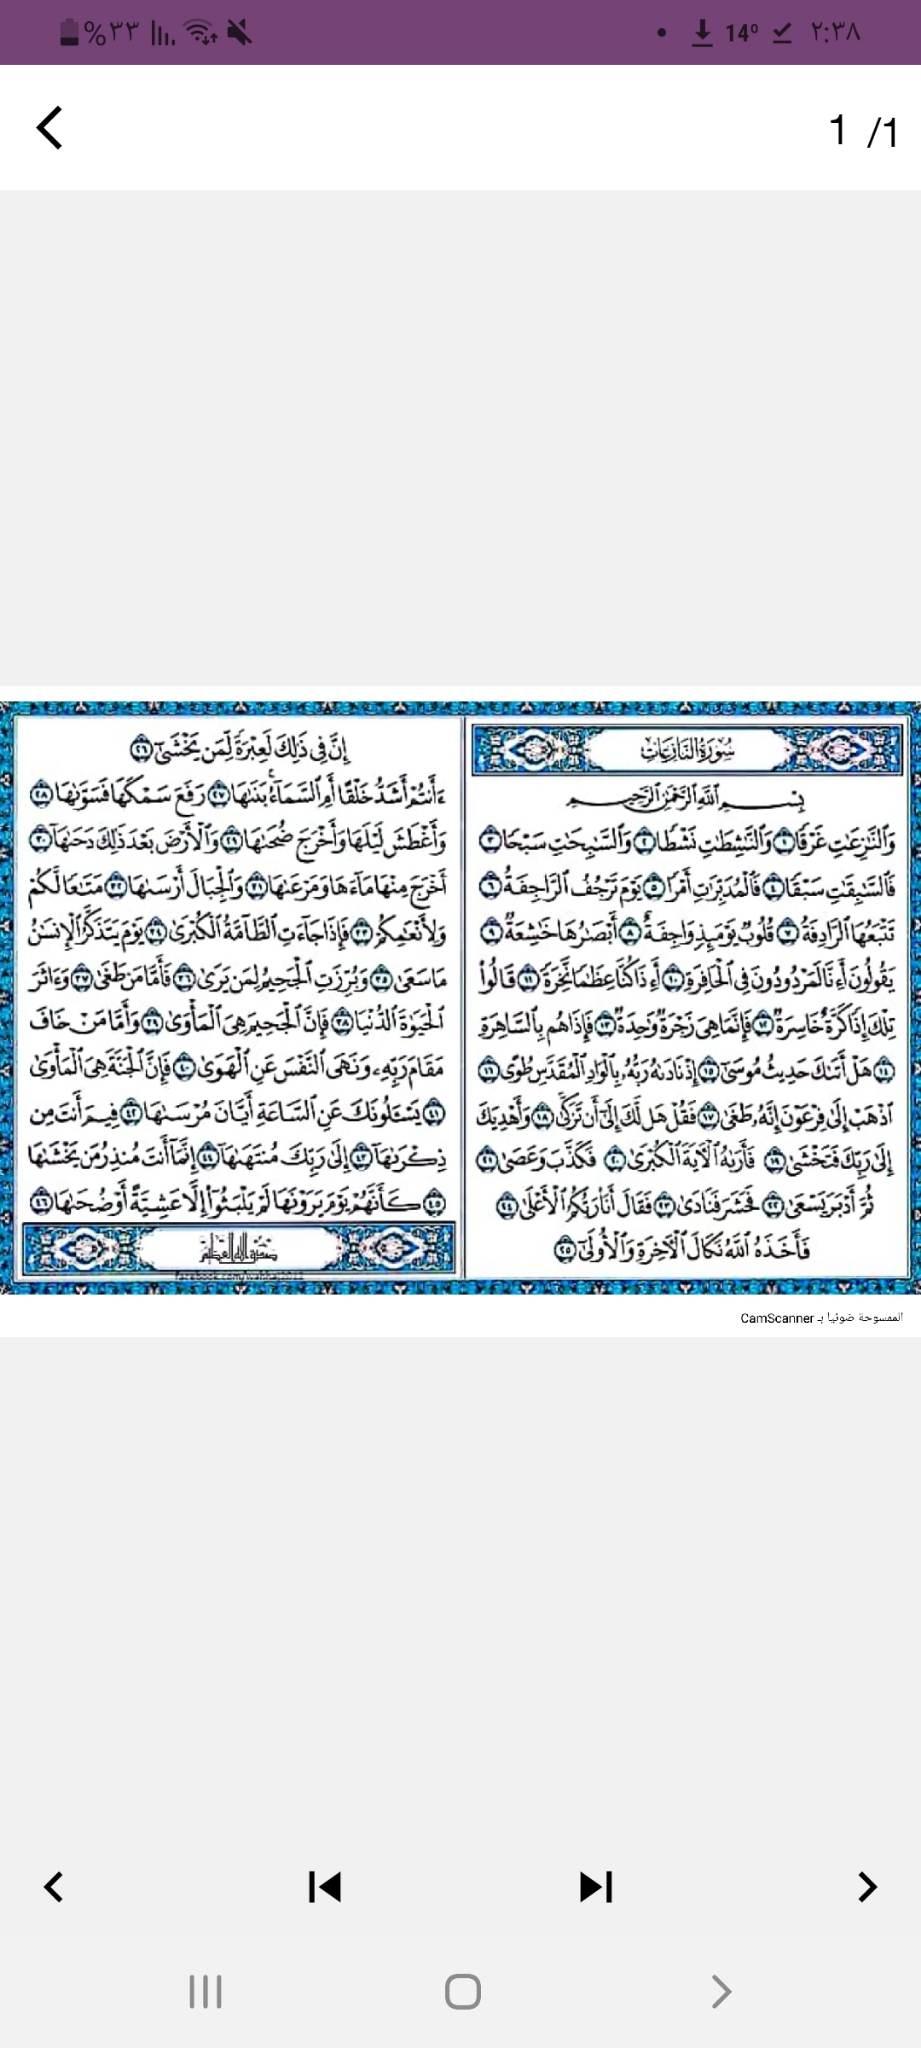 ٢:٣٨ 14° %٣٣
1 /1
سُورَةُ النَّازِعَاتِ
بِسْمِ اللَّهِ الرَّحْمَٰنِ الرَّحِيمِ
وَالنَّٰزِعَٰتِ غَرْقًا ١ وَالنَّٰشِطَٰتِ نَشْطًا ٢ وَالسَّٰبِحَٰتِ سَبْحًا ٣
فَالسَّٰبِقَٰتِ سَبْقًا ٤ فَالْمُدَبِّرَٰتِ أَمْرًا ٥ يَوْمَ تَرْجُفُ الرَّاجِفَةُ ٦
تَتْبَعُهَا الرَّادِفَةُ ٧ قُلُوبٌ يَوْمَئِذٍ وَاجِفَةٌ ٨ أَبْصَٰرُهَا خَٰشِعَةٌ ٩
يَقُولُونَ أَءِنَّا لَمَرْدُودُونَ فِي الْحَافِرَةِ ١٠ أَءِذَا كُنَّا عِظَٰمًا نَّخِرَةً ١١ قَالُوا
تِلْكَ إِذًا كَرَّةٌ خَاسِرَةٌ ١٢ فَإِنَّمَا هِيَ زَجْرَةٌ وَٰحِدَةٌ ١٣ فَإِذَا هُم بِالسَّاهِرَةِ
١٤ هَلْ أَتَىٰكَ حَدِيثُ مُوسَىٰ ١٥ إِذْ نَادَىٰهُ رَبُّهُۥ بِالْوَادِ الْمُقَدَّسِ طُوًى ١٦
اذْهَبْ إِلَىٰ فِرْعَوْنَ إِنَّهُۥ طَغَىٰ ١٧ فَقُلْ هَل لَّكَ إِلَىٰ أَن تَزَكَّىٰ ١٨ وَأَهْدِيَكَ
إِلَىٰ رَبِّكَ فَتَخْشَىٰ ١٩ فَأَرَىٰهُ الْآيَةَ الْكُبْرَىٰ ٢٠ فَكَذَّبَ وَعَصَىٰ ٢١
ثُمَّ أَدْبَرَ يَسْعَىٰ ٢٢ فَحَشَرَ فَنَادَىٰ ٢٣ فَقَالَ أَنَا رَبُّكُمُ الْأَعْلَىٰ ٢٤
فَأَخَذَهُ اللَّهُ نَكَالَ الْآخِرَةِ وَالْأُولَىٰ ٢٥
إِنَّ فِي ذَٰلِكَ لَعِبْرَةً لِّمَن يَخْشَىٰ ٢٦
ءَأَنتُمْ أَشَدُّ خَلْقًا أَمِ السَّمَاءُ بَنَىٰهَا ٢٧ رَفَعَ سَمْكَهَا فَسَوَّىٰهَا ٢٨
وَأَغْطَشَ لَيْلَهَا وَأَخْرَجَ ضُحَىٰهَا ٢٩ وَالْأَرْضَ بَعْدَ ذَٰلِكَ دَحَىٰهَا ٣٠
أَخْرَجَ مِنْهَا مَاءَهَا وَمَرْعَىٰهَا ٣١ وَالْجِبَالَ أَرْسَىٰهَا ٣٢ مَتَٰعًا لَّكُمْ
وَلِأَنْعَٰمِكُمْ ٣٣ فَإِذَا جَاءَتِ الطَّامَّةُ الْكُبْرَىٰ ٣٤ يَوْمَ يَتَذَكَّرُ الْإِنسَٰنُ
مَا سَعَىٰ ٣٥ وَبُرِّزَتِ الْجَحِيمُ لِمَن يَرَىٰ ٣٦ فَأَمَّا مَن طَغَىٰ ٣٧ وَءَاثَرَ
الْحَيَوٰةَ الدُّنْيَا ٣٨ فَإِنَّ الْجَحِيمَ هِيَ الْمَأْوَىٰ ٣٩ وَأَمَّا مَنْ خَافَ
مَقَامَ رَبِّهِۦ وَنَهَى النَّفْسَ عَنِ الْهَوَىٰ ٤٠ فَإِنَّ الْجَنَّةَ هِيَ الْمَأْوَىٰ
٤١ يَسْـَٔلُونَكَ عَنِ السَّاعَةِ أَيَّانَ مُرْسَىٰهَا ٤٢ فِيمَ أَنتَ مِن
ذِكْرَىٰهَا ٤٣ إِلَىٰ رَبِّكَ مُنتَهَىٰهَا ٤٤ إِنَّمَا أَنتَ مُنذِرُ مَن يَخْشَىٰهَا
٤٥ كَأَنَّهُمْ يَوْمَ يَرَوْنَهَا لَمْ يَلْبَثُوا إِلَّا عَشِيَّةً أَوْ ضُحَىٰهَا ٤٦
صدق الله العظيم
الممسوحة ضوئيا بـ CamScanner